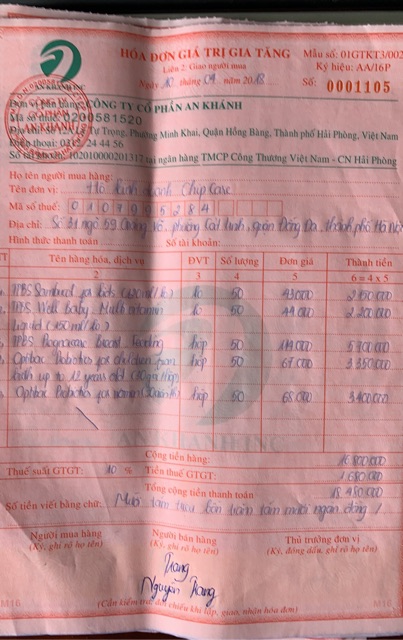 HÓA ĐƠN GIÁ TRỊ GIA TĂNG
Mẫu số: 01GTKT3/002
Liên 2: Giao người mua
Ký hiệu: AA/16P
Ngày 10 tháng 04 năm 2018
Số: 0001105
AN KHANH INC
Đơn vị bán hàng: CÔNG TY CỔ PHẦN AN KHÁNH
Mã số thuế: 0200581520
Địa chỉ: Số Trọng, Phường Minh Khai, Quận Hồng Bàng, Thành phố Hải Phòng, Việt Nam
Điện thoại: 0312. 24 44 56
Số tài khoản: 102010000201312 tại ngân hàng TMCP Công Thương Việt Nam - CN Hải Phòng
Họ tên người mua hàng:
Tên đơn vị: Hộ kinh doanh Chip Case
Mã số thuế: 0107995284
Địa chỉ: Số 31 ngõ 59 phường Cát Linh, quận Đống Đa, thành phố Hà Nội
Hình thức thanh toán Số tài khoản:
Tên hàng hóa, dịch vụ ĐVT Số lượng Đơn giá Thành tiền
2 3 4 5 6 = 4 x 5
for kids lo 50 43000 2 150 000
Well baby Multi vitamin lo 50 44 000 2 200 000
liquid (150 ml/lo)
Pregnacare Breast Feeding hộp 50 114 000 5 700 000
Optibac Probiotics for children from hộp 50 67 000 3 350 000
birth up to 12 years old
Optibac Probiotics for women hộp 50 68 000 3 400 000
AN KHANH INC
Cộng tiền hàng: 16 800 000
Thuế suất GTGT: 10 % Tiền thuế GTGT: 1 680 000
Tổng cộng tiền thanh toán 18 480 000
Số tiền viết bằng chữ: Mười tám triệu bốn trăm tám mươi ngàn đồng /
Người mua hàng Người bán hàng Thủ trưởng đơn vị
(Ký, ghi rõ họ tên) (Ký, ghi rõ họ tên) (Ký, đóng dấu, ghi rõ họ tên)
Trang
Nguyễn Trang
M16 (Cần kiểm tra, đối chiếu khi lập, giao, nhận hóa đơn) M16